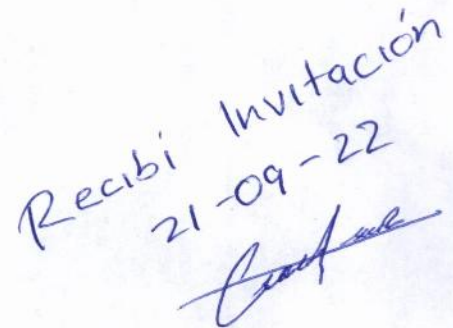 Recibi Invitación
21-09-22